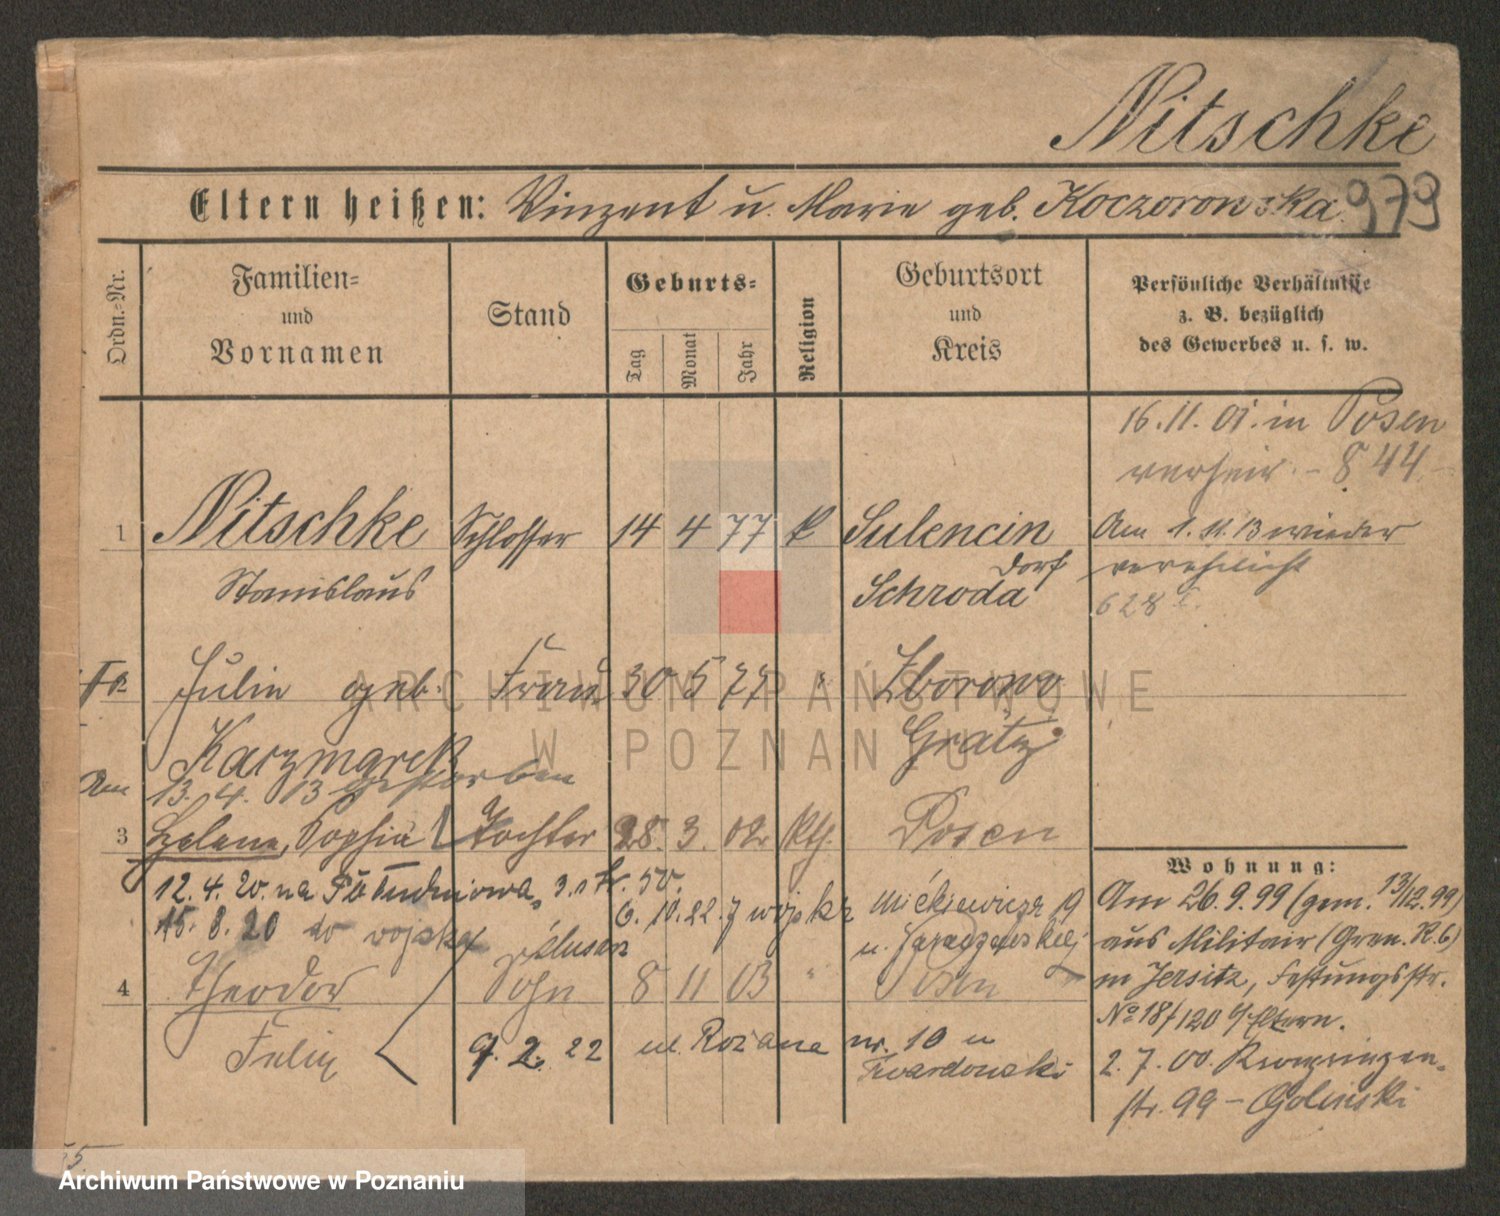 Nitschke
Eltern heißen: Vinzent u. Marie geb. Koczorowska
979
Ordn.-Nr.
Familien-
und
Vornamen
Stand
Geburts-
Tag
Monat
Jahr
Religion
Geburtsort
und
Kreis
Persönliche Verhältnisse
z. B. bezüglich
des Gewerbes u. s. w.
16.11.01. in Posen
verheir. - 844
1 Nitschke Schlosser 14 4 77 k Sulencin
Stanislaus
Dorf
Schroda
Am 1.11.13 wieder
verehelicht
628
Fr Julie geb. Frau 30 5 77 " Zborowo
Kaczmarek
Grätz
Am 13. 4. 13 gestorben
3 Helene, Sophie Tochter 28. 3. 02 kth. Posen
12.4.20. na Południowa 50.
15.8.20 do wojska
6.10.22. z wojska Mickiewicza 9
u.
4 Theodor Sohn 8 11 03 " Posen
Felix
9. 2. 22 ul. Rożana nr. 10 u
Twardowski
Wohnung:
Am 26.9.99 (gem. 13/12.99)
aus Militair (Gren. R. 6)
in Jersitz, Festungsstr.
No 18/120 b/Eltern.
2. 7. 00. Kronprinzen-
str. 99 - Golinski
ARCHIWUM PAŃSTWOWE
W POZNANIU
Archiwum Państwowe w Poznaniu